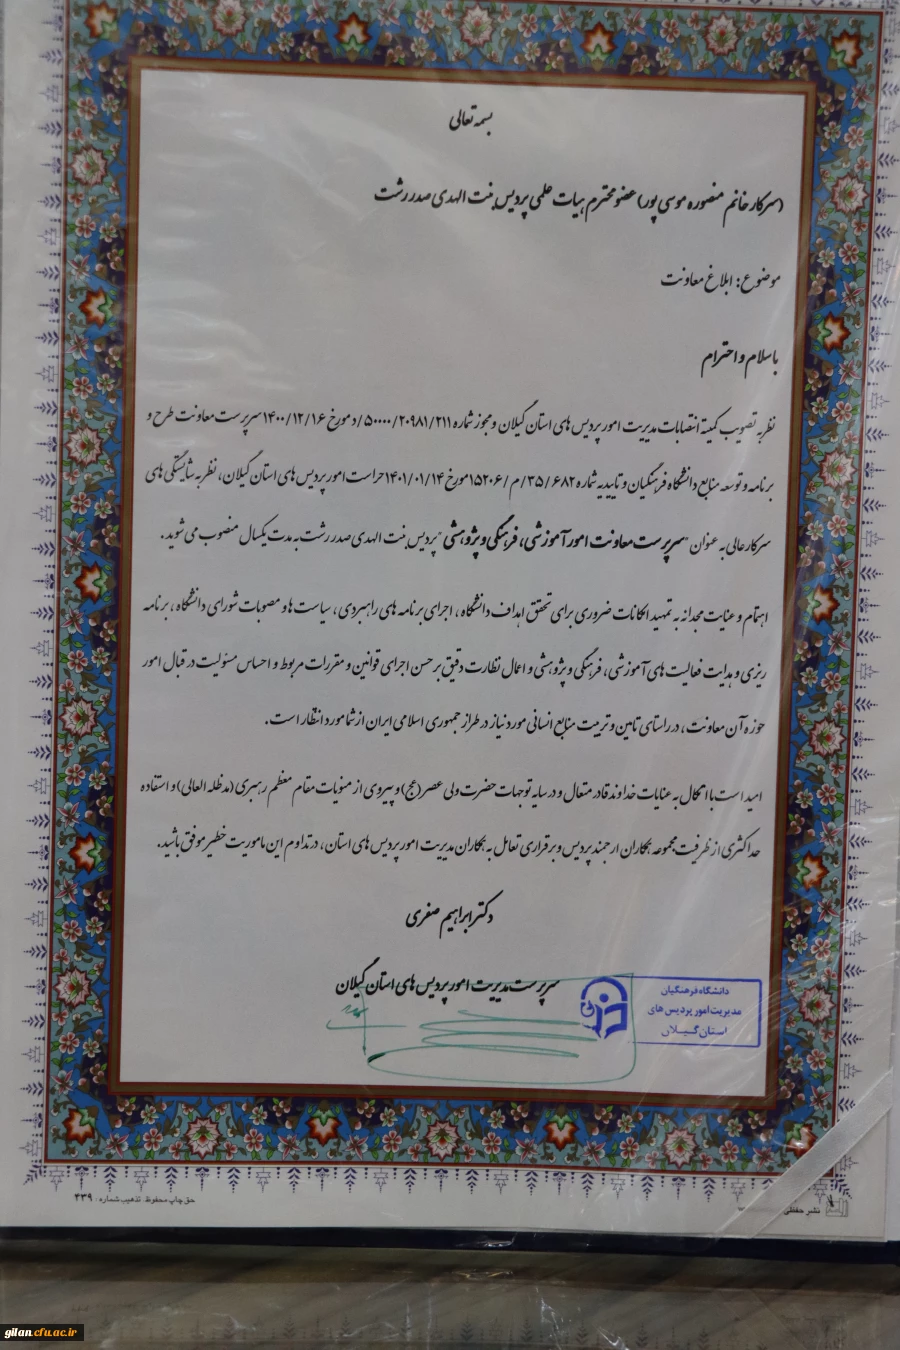 بسمه تعالی
(سرکار خانم منصوره موسی پور) عضو محترم هیات علمی پردیس بنت الهدی صدر رشت
موضوع: ابلاغ معاونت
باسلام و احترام
نظر به تصویب کمیته انتصابات مدیریت امور پردیس های استان گیلان و مجوز شماره ۵۰۰۰۰/۲۰۹۸۱/۲۱۱/د مورخ ۱۴۰۰/۱۲/۱۶ سرپرست معاونت طرح و
برنامه و توسعه منابع دانشگاه فرهنگیان و تاییدیه شماره ۱۵۲۰۶/م/۳۵/۶۸۲ مورخ ۱۴۰۱/۰۱/۱۴ حراست امور پردیس های استان گیلان، نظر به شایستگی های
سرکار عالی به عنوان "سرپرست معاونت امور آموزشی، فرهنگی و پژوهشی" پردیس بنت الهدی صدر رشت به مدت یکسال منصوب می شوید.
اهتمام و عنایت مجدانه به تمهید امکانات ضروری برای تحقق اهداف دانشگاه، اجرای برنامه های راهبردی، سیاست ها و مصوبات شورای دانشگاه، برنامه
ریزی و هدایت فعالیت های آموزشی، فرهنگی و پژوهشی و اعمال نظارت دقیق بر حسن اجرای قوانین و مقررات مربوط و احساس مسئولیت در قبال امور
حوزه آن معاونت، در راستای تامین و تربیت منابع انسانی مورد نیاز در طراز جمهوری اسلامی ایران از شما مورد انتظار است.
امید است با اتکال به عنایات خداوند قادر متعال و در سایه توجهات حضرت ولی عصر(عج) و پیروی از منویات مقام معظم رهبری(مدظله العالی) و استفاده
حداکثری از ظرفیت مجموعه همکاران ارجمند پردیس و برقراری تعامل به همکاران مدیریت امور پردیس های استان، در تداوم این ماموریت خطیر موفق باشید.
دکتر ابراهیم صفری
سرپرست مدیریت امور پردیس های استان گیلان
دانشگاه فرهنگیان
مدیریت امور پردیس های
استان گیلان
حق چاپ محفوظ. تذهیب شماره: ۴۳۹
نشر حفظی
gilan.cfu.ac.ir